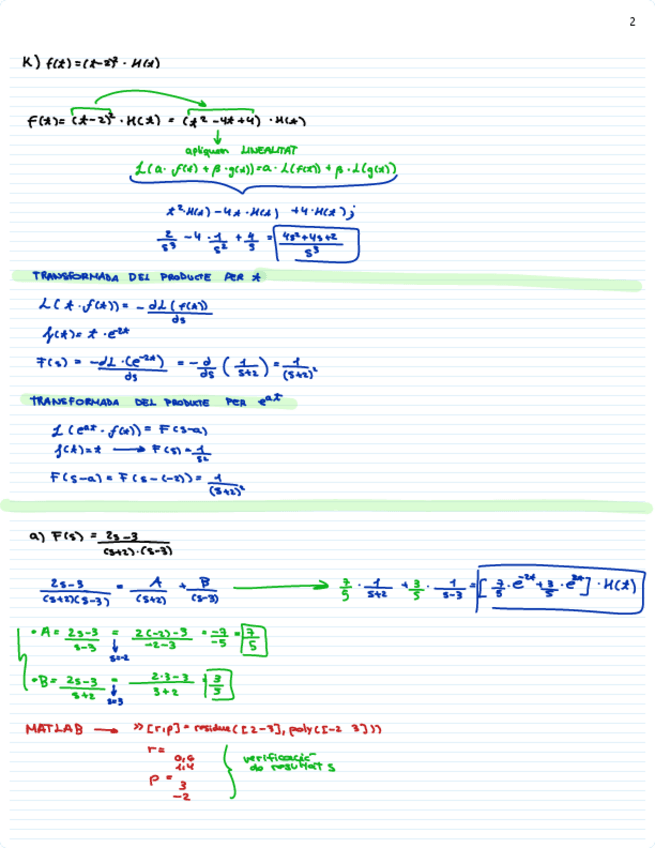 2
K) f(t)=(t-2)² · H(t)
f(t)= (t-2)² · H(t) = (t² -4t+4) · H(t)
apliquem LINEALITAT
L(a· f(t) + β·g(t))=a· L(f(t)) + β·L(g(t))
t²·H(t) -4t ·H(t) +4·H(t);
2/s³ -4·1/s² + 4/s = 4s²+4s+2/s³
TRANSFORMADA DEL PRODUCTE PER t
L(t · f(t)) = - dL(f(t))/ds
f(t)= t ·e^-2t
F(s) = -dL·(e^-2t)/ds = -d/ds (1/s+2) = 1/(s+2)²
TRANSFORMADA DEL PRODUCTE PER e^at
L(e^at · f(t)) = F(s-a)
f(t)=t → F(s)=1/s²
F(s-a) = F(s-(-2)) = 1/(s+2)²
a) F(s) = 2s-3/(s+2)·(s-3)
2s-3/(s+2)(s-3) = A/(s+2) + B/(s-3) → 7/5 · 1/s+2 + 3/5 · 1/s-3 = [7/5·e^-2t + 3/5·e^3t] · H(t)
• A= 2s-3/s-3 = 2(-2)-3/-2-3 = -7/-5 = 7/5
s=-2
• B= 2s-3/s+2 = 2·3-3/3+2 = 3/5
s=3
MATLAB → >> [r,p]= residue([2 -3], poly([-2 3]))
r=
0,6
1,4
p =
3
-2
verificació
de resultats